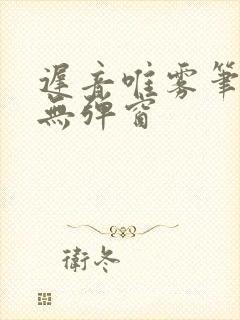 遲音唯雾筆
無彈窗
衛冬